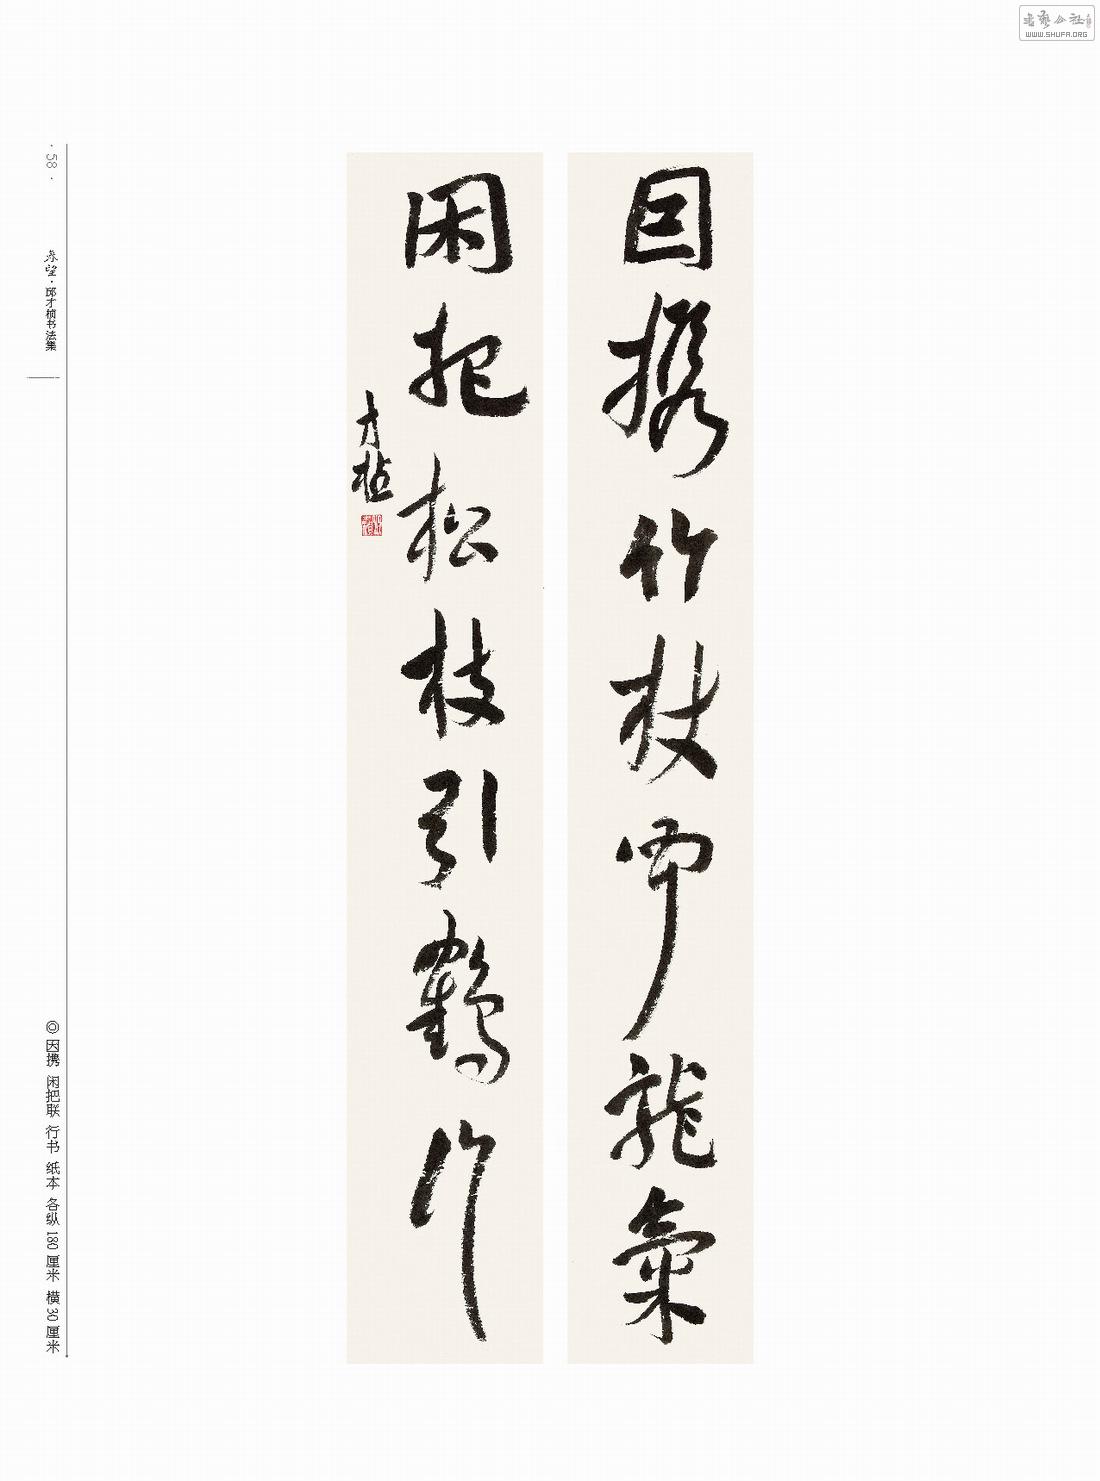 书艺公社
WWW.SHUFA.ORG
囙攜竹杖聞龍氣
閑把松枝引鶴行
才楨
· 58 ·
春望·邱才桢书法集
◎ 因携 闲把联 行书 纸本 各纵180厘米 横30厘米